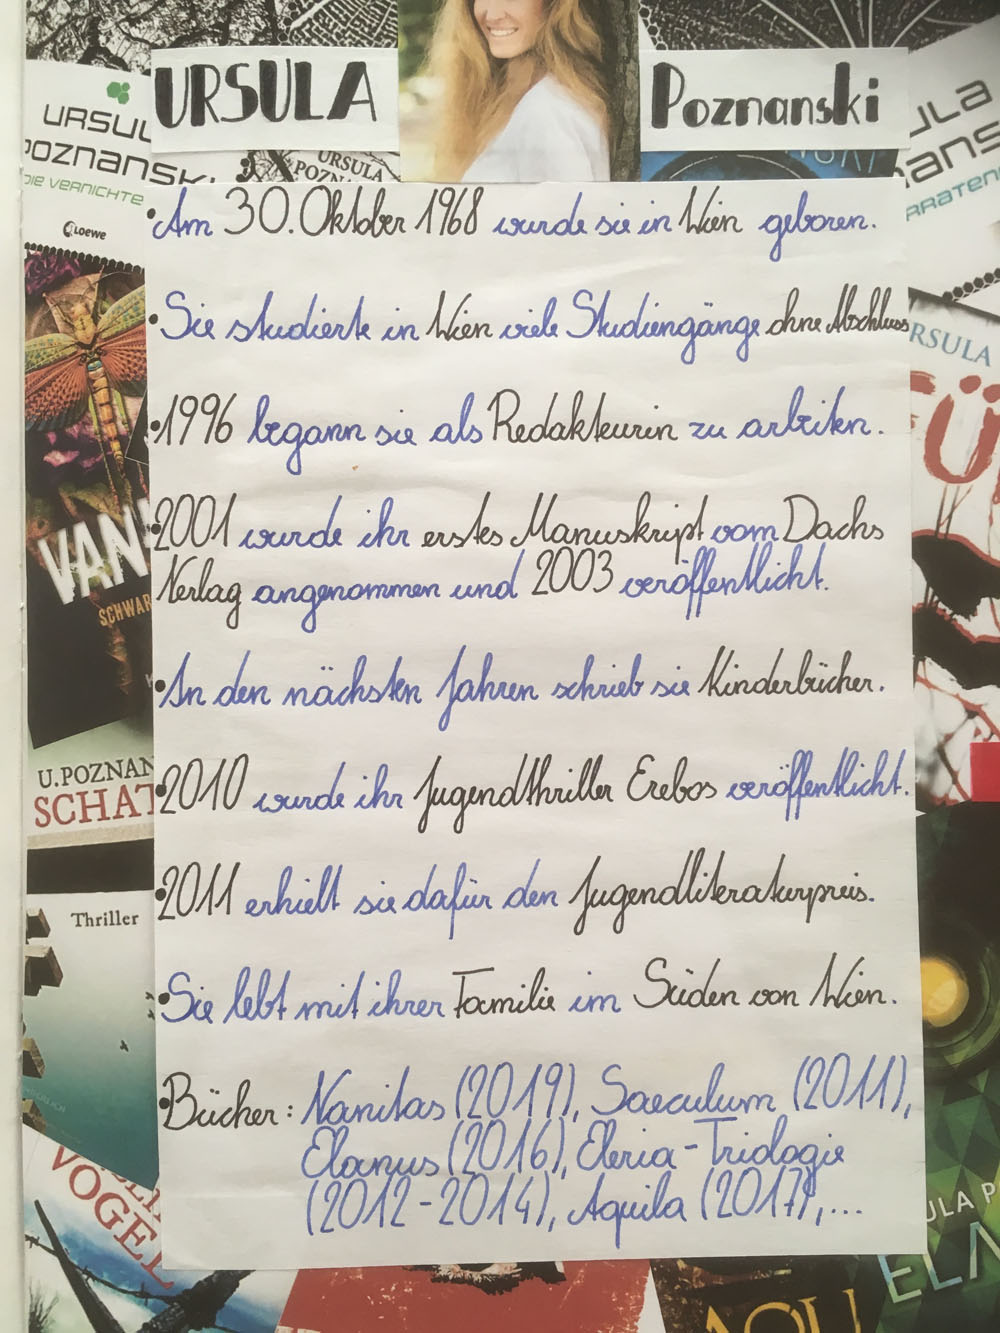 URSULA Poznanski
URSUL
POZNANSKI
DIE VERNICHTE
Loewe
URSULA
POZNANSKI
ULA
NANS
RRATEN
• Am 30. Oktober 1968 wurde sie in Wien geboren.
• Sie studierte in Wien viele Studiengänge ohne Abschluss
RSULA
• 1996 begann sie als Redakteurin zu arbeiten.
• 2001 wurde ihr erstes Manuskript vom Dachs
Verlag angenommen und 2003 veröffentlicht.
VAN
SCHWAR
• In den nächsten Jahren schrieb sie Kinderbücher.
U.POZNAN
SCHAT
• 2010 wurde ihr Jugendthriller Erebos veröffentlicht.
• 2011 erhielt sie dafür den Jugendliteraturpreis.
Thriller
• Sie lebt mit ihrer Familie im Süden von Wien.
• Bücher: Vanitas (2019), Saeculum (2011),
Elanus (2016), Eleria-Triologie
(2012-2014), Aquila (2017),...
VOGEL
ULA P
ELA
AQU